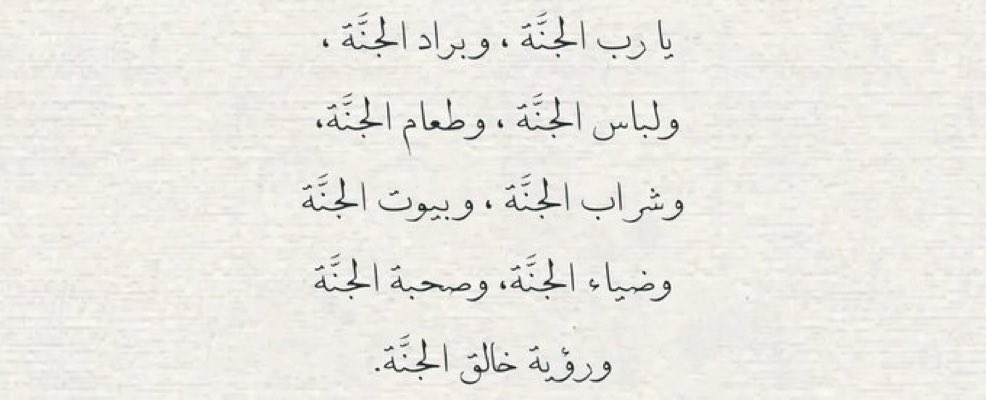 يا رب الجنَّة ، وبراد الجنَّة ،
ولباس الجنَّة ، وطعام الجنَّة،
وشراب الجنَّة ، وبيوت الجنَّة
وضياء الجنَّة، وصحبة الجنَّة
ورؤية خالق الجنَّة.